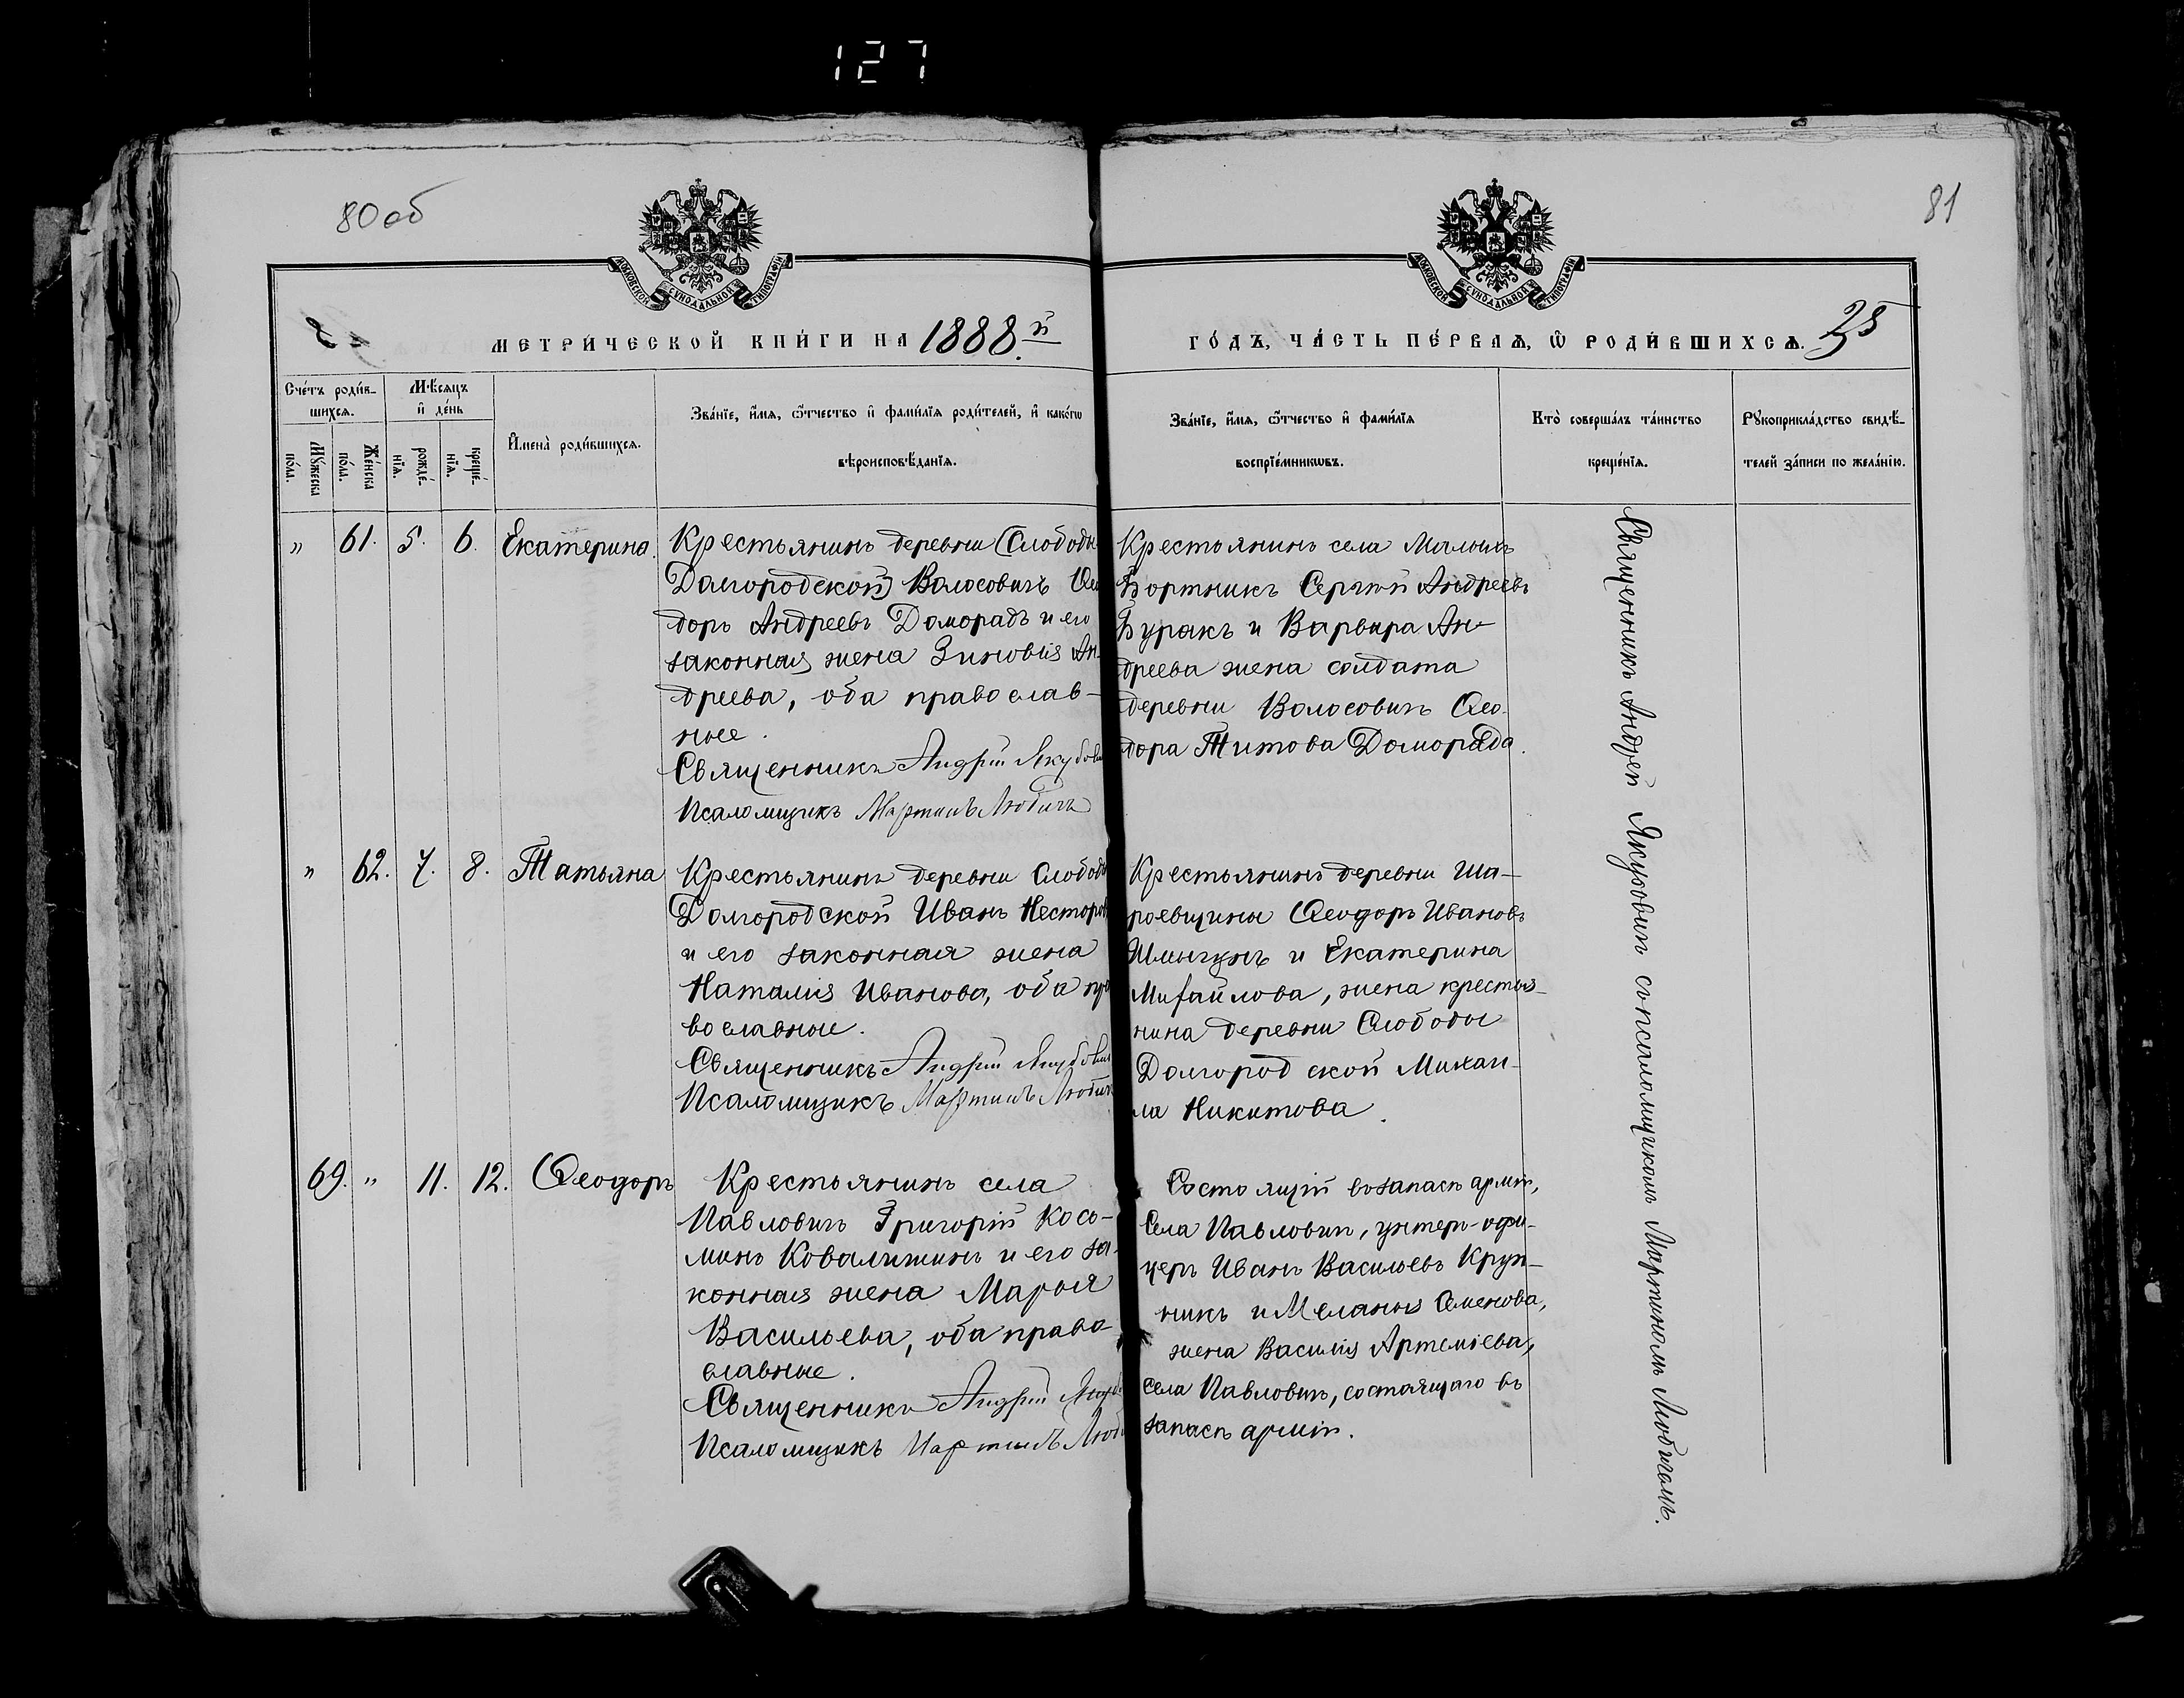 127
80 об
81
МОСКОВСКОЙ СѴНОДАЛЬНОЙ ТИПОГРАФІИ
МОСКОВСКОЙ СѴНОДАЛЬНОЙ ТИПОГРАФІИ
МЕТРИ́ЧЕСКОЙ КНИ́ГИ НА 1888.й
ГО́ДЪ, ЧА́СТЬ ПЕ́РВАѦ, Ѡ РОДИ́ВШИХСѦ. 25
Сче́тъ роди́в-
шихся.
Мѣ́сяцъ
и҆ де́нь
Мꙋ́жеска
по́ла.
Же́нска
по́ла.
рожде́-
нїя.
креще́-
нїя.
И҆мена̀ роди́вшихся.
Зва́нїе, и҆́мя, ѻ҆́тчество и҆ фами́лїя роди́телей, и҆ како́гѡ
вѣроисповѣ́данїя.
Зва́нїе, и҆́мя, ѻ҆́тчество и҆ фами́лїя
воспрїе́мникѡвъ.
Кто̀ соверша́лъ та́инство
креще́нїя.
Рꙋкоприкла́дство свидѣ́-
телей за́писи по жела́нїю.
„ 61. 5. 6. Екатерина.
Крестьянинъ деревни (Слободы
Долгородской) Волосовичъ Ѳео
доръ Андреевъ Доморадъ и его
законная жена Зиновія Ан-
дреева, оба православ-
ные.
Священникъ Андрей Якубови
Псаломщикъ Мартинъ Любичъ
Крестьянинъ села Малыхъ
Бортникъ Сергѣй Андреевъ
Буракъ и Варвара Ан-
дреева жена солдата
деревни Волосовичъ Ѳео-
дора Титова Доморада.
Священникъ Андрей Якубовичъ съ псаломщикомъ Мартиномъ Любичомъ.
„ 62. 7. 8. Татьяна
Крестьянинъ деревни Слободы
Долгородской Иванъ Несторов
и его законная жена
Наталія Иванова, оба пра
вославные.
Священникъ Андрей Якубови
Псаломщикъ Мартинъ Любич
Крестьянинъ деревни Ша-
роевщины Ѳеодоръ Ивановъ
и Екатерина
Михайлова, жена крестья-
нина деревни Слободы
Долгородской Михаи-
ла Никитова.
69. „ 11. 12. Ѳеодоръ
Крестьянинъ села
Павловичъ Григорій Кось-
минъ Ковалишинъ и его за-
конная жена Марья
Васильева, оба право
славные.
Священникъ Андрей Якуб
Псаломщикъ Мартинъ Люби
Состоящій въ запасѣ арміи,
села Павловичъ, унтеръ-офи-
церъ Иванъ Васильевъ Круп-
никъ и Меланья Семенова,
жена Василія Артеміева,
села Павловичъ, состоящаго въ
запасѣ арміи.